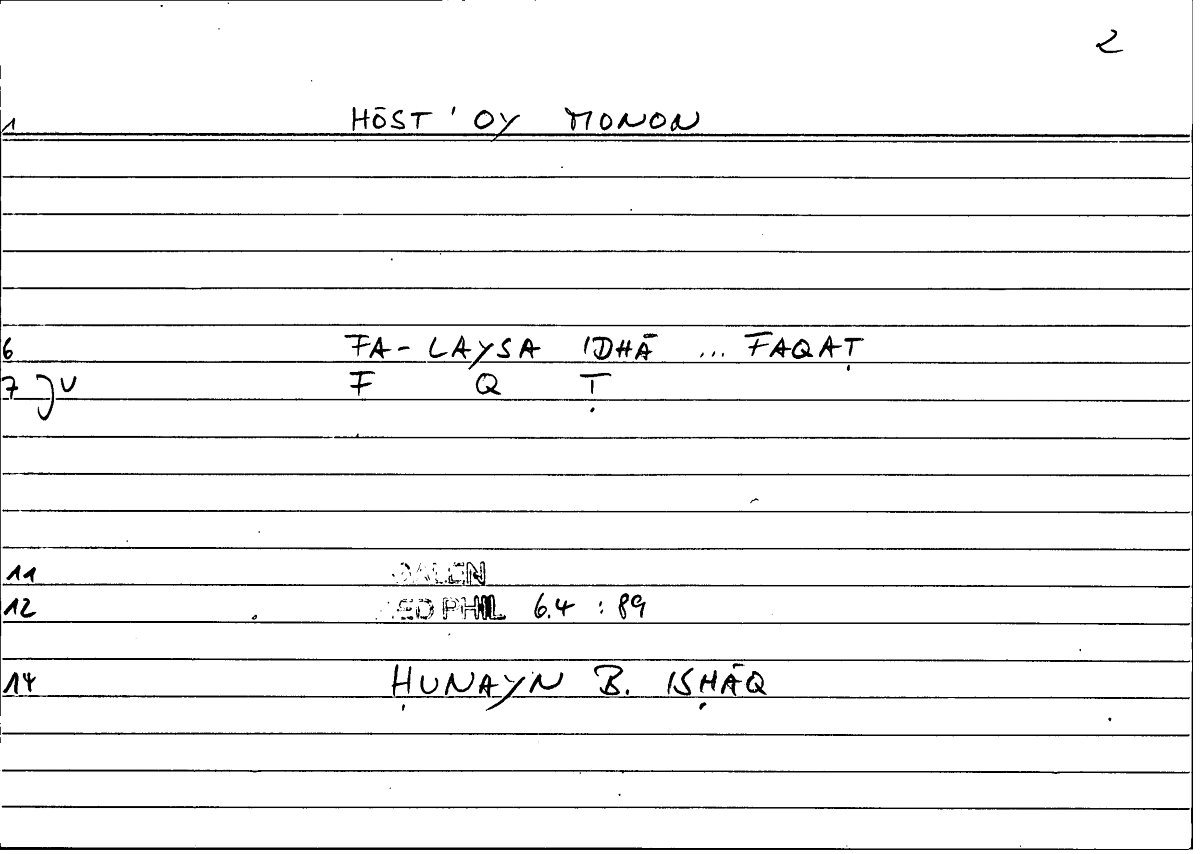 2
1 HŌST ' OY MONON
6 FA-LAYSA IDHĀ ... FAQAṬ
7 JV F Q Ṭ
11 GALEN
12 MED PHIL 6.4 : 89
14 ḤUNAYN B. ISḤĀQ